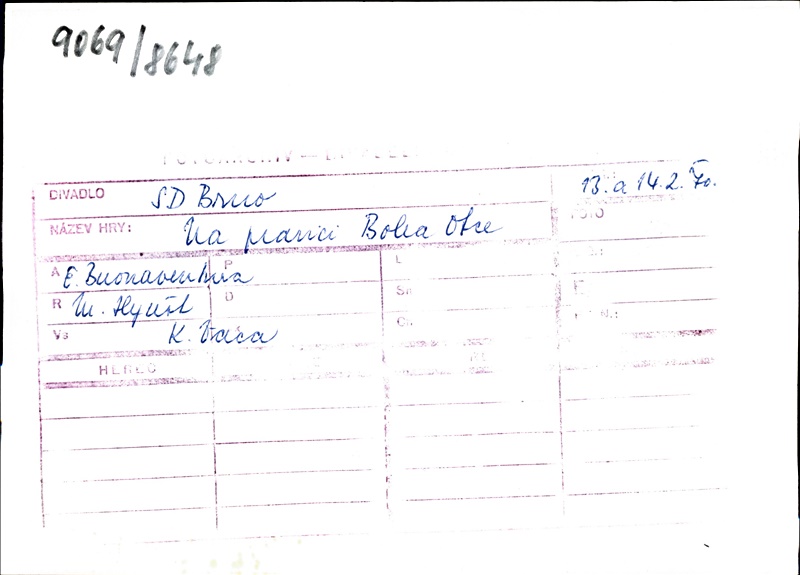 9069/8648
DIVADLO SD Brno 13. a 14.2.70.
NÁZEV HRY: Na pravici Boha Otce FOTO
A E. Buonaventura P L
R M. Hynšt D Sn
Vs K. Vaca Ch
HEREC